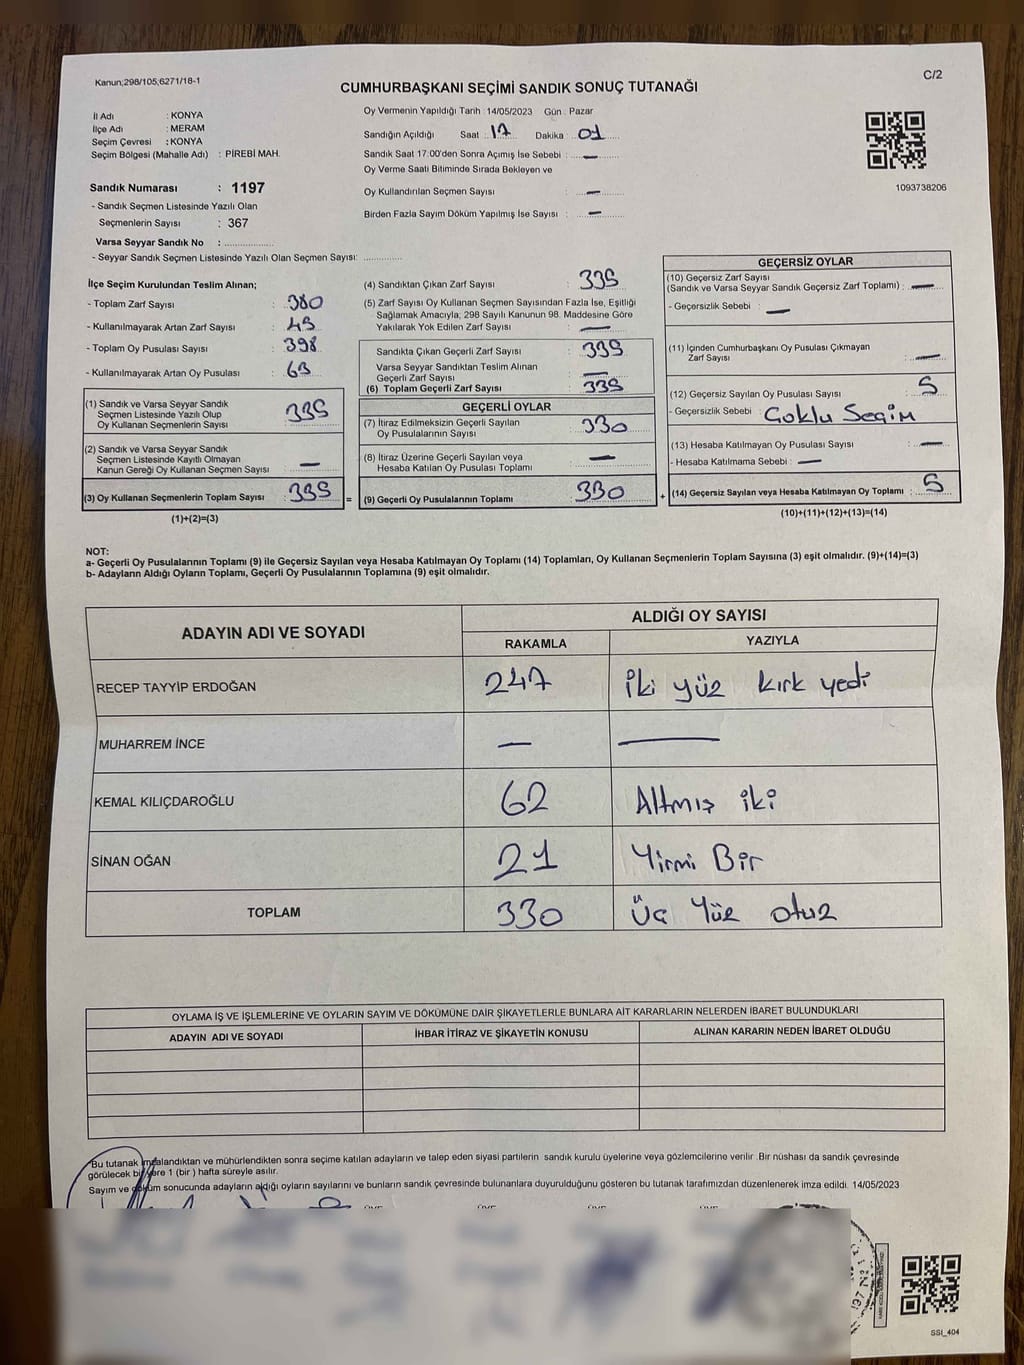 Kanun;298/105,6271/18-1
C/2
CUMHURBAŞKANI SEÇİMİ SANDIK SONUÇ TUTANAĞI
İl Adı : KONYA
İlçe Adı : MERAM
Seçim Çevresi : KONYA
Seçim Bölgesi (Mahalle Adı) : PİREBİ MAH.
Sandık Numarası : 1197
- Sandık Seçmen Listesinde Yazılı Olan
Seçmenlerin Sayısı : 367
Varsa Seyyar Sandık No : ....................
- Seyyar Sandık Seçmen Listesinde Yazılı Olan Seçmen Sayısı: ..............
Oy Vermenin Yapıldığı Tarih : 14/05/2023 Gün : Pazar
Sandığın Açıldığı Saat : 17 Dakika : 01
Sandık Saat 17:00'den Sonra Açımış İse Sebebi : —
Oy Verme Saati Bitiminde Sırada Bekleyen ve
Oy Kullandırılan Seçmen Sayısı : —
Birden Fazla Sayım Döküm Yapılmış İse Sayısı : —
1093738206
İlçe Seçim Kurulundan Teslim Alınan;
- Toplam Zarf Sayısı : 380
- Kullanılmayarak Artan Zarf Sayısı : 45
- Toplam Oy Pusulası Sayısı : 398
- Kullanılmayarak Artan Oy Pusulası : 63
(1) Sandık ve Varsa Seyyar Sandık
Seçmen Listesinde Yazılı Olup
Oy Kullanan Seçmenlerin Sayısı : 335
(2) Sandık ve Varsa Seyyar Sandık
Seçmen Listesinde Kayıtlı Olmayan
Kanun Gereği Oy Kullanan Seçmen Sayısı : —
(3) Oy Kullanan Seçmenlerin Toplam Sayısı : 335 =
(1)+(2)=(3)
(4) Sandıktan Çıkan Zarf Sayısı : 335
(5) Zarf Sayısı Oy Kullanan Seçmen Sayısından Fazla İse, Eşitliği
Sağlamak Amacıyla, 298 Sayılı Kanunun 98. Maddesine Göre
Yakılarak Yok Edilen Zarf Sayısı : —
Sandıkta Çıkan Geçerli Zarf Sayısı : 335
Varsa Seyyar Sandıktan Teslim Alınan
Geçerli Zarf Sayısı : —
(6) Toplam Geçerli Zarf Sayısı : 335
GEÇERLİ OYLAR
(7) İtiraz Edilmeksizin Geçerli Sayılan
Oy Pusulalarının Sayısı : 330
(8) İtiraz Üzerine Geçerli Sayılan veya
Hesaba Katılan Oy Pusulası Toplamı : —
(9) Geçerli Oy Pusulalarının Toplamı : 330 +
GEÇERSİZ OYLAR
(10) Geçersiz Zarf Sayısı
(Sandık ve Varsa Seyyar Sandık Geçersiz Zarf Toplamı) : —
- Geçersizlik Sebebi : —
(11) İçinden Cumhurbaşkanı Oy Pusulası Çıkmayan
Zarf Sayısı : —
(12) Geçersiz Sayılan Oy Pusulası Sayısı : 5
- Geçersizlik Sebebi : Çoklu Seçim
(13) Hesaba Katılmayan Oy Pusulası Sayısı : —
- Hesaba Katılmama Sebebi : —
(14) Geçersiz Sayılan veya Hesaba Katılmayan Oy Toplamı : 5
(10)+(11)+(12)+(13)=(14)
NOT:
a- Geçerli Oy Pusulalarının Toplamı (9) ile Geçersiz Sayılan veya Hesaba Katılmayan Oy Toplamı (14) Toplamları, Oy Kullanan Seçmenlerin Toplam Sayısına (3) eşit olmalıdır. (9)+(14)=(3)
b- Adayların Aldığı Oyların Toplamı, Geçerli Oy Pusulalarının Toplamına (9) eşit olmalıdır.
ADAYIN ADI VE SOYADI
ALDIĞI OY SAYISI
RAKAMLA YAZIYLA
RECEP TAYYİP ERDOĞAN 247 iki yüz kırk yedi
MUHARREM İNCE — —
KEMAL KILIÇDAROĞLU 62 Altmış iki
SİNAN OĞAN 21 Yirmi Bir
TOPLAM 330 Üç Yüz otuz
OYLAMA İŞ VE İŞLEMLERİNE VE OYLARIN SAYIM VE DÖKÜMÜNE DAİR ŞİKAYETLERLE BUNLARA AİT KARARLARIN NELERDEN İBARET BULUNDUKLARI
ADAYIN ADI VE SOYADI İHBAR İTİRAZ VE ŞİKAYETİN KONUSU ALINAN KARARIN NEDEN İBARET OLDUĞU
Bu tutanak imzalandıktan ve mühürlendikten sonra seçime katılan adayların ve talep eden siyasi partilerin sandık kurulu üyelerine veya gözlemcilerine verilir. Bir nüshası da sandık çevresinde
görülecek bir yere 1 (bir ) hafta süreyle asılır.
Sayım ve döküm sonucunda adayların aldığı oyların sayılarını ve bunların sandık çevresinde bulunanlara duyurulduğunu gösteren bu tutanak tarafımızdan düzenlenerek imza edildi. 14/05/2023
SSI_404